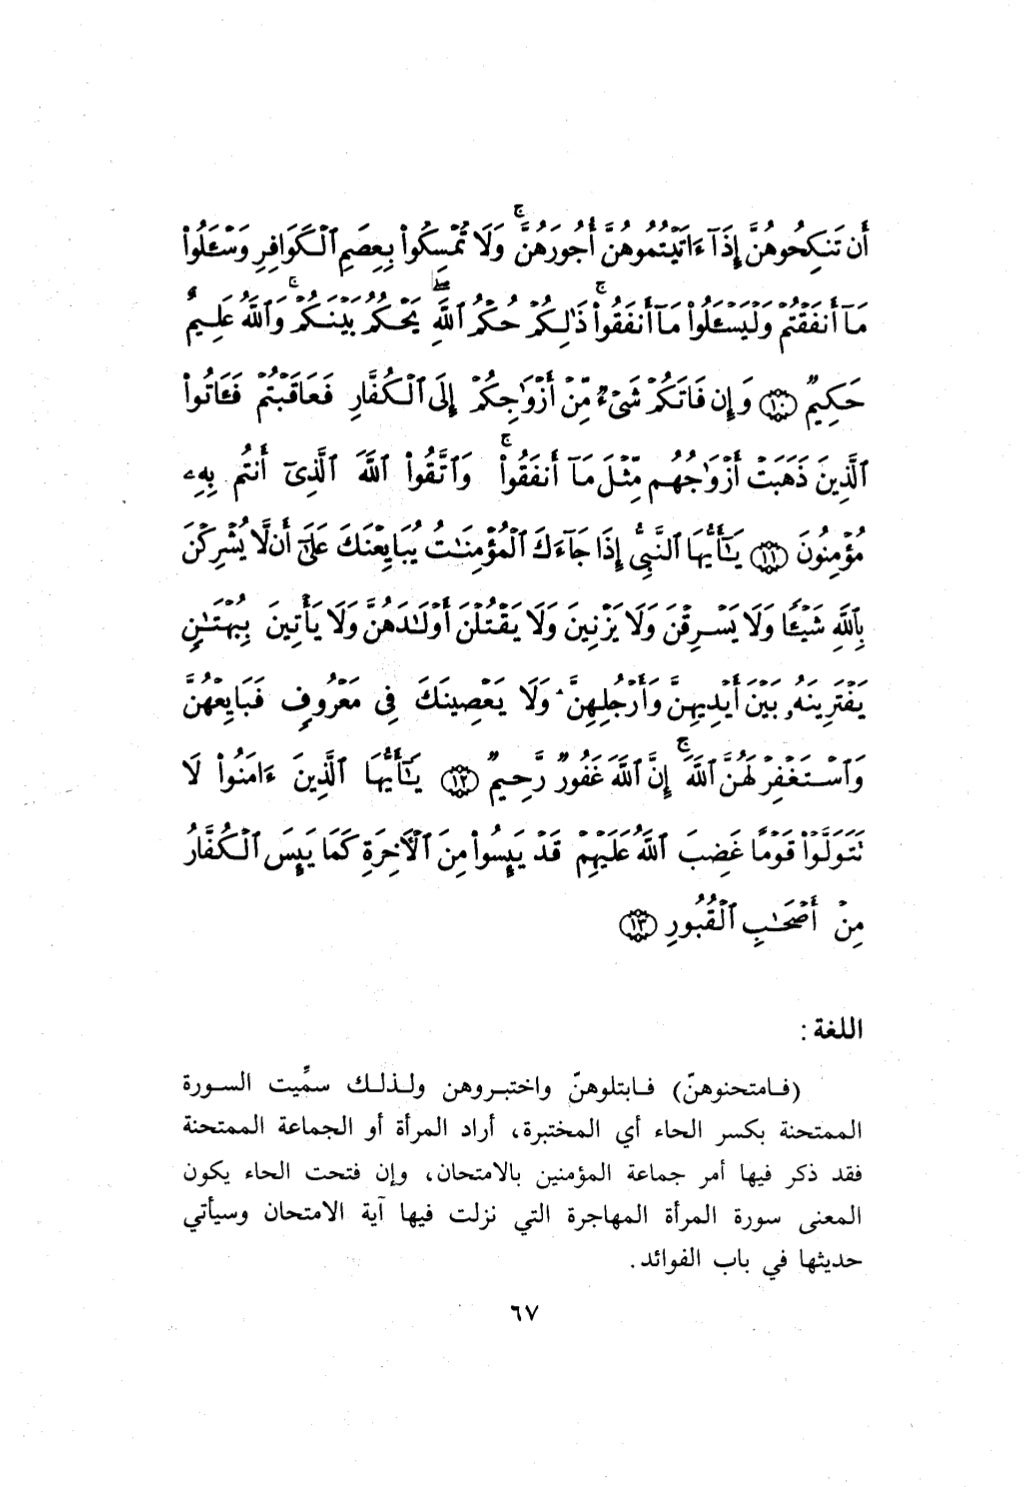 أَن تَنكِحُوهُنَّ إِذَآ ءَاتَيْتُمُوهُنَّ أُجُورَهُنَّ ۚ وَلَا تُمْسِكُوا۟ بِعِصَمِ ٱلْكَوَافِرِ وَسْـَٔلُوا۟
مَآ أَنفَقْتُمْ وَلْيَسْـَٔلُوا۟ مَآ أَنفَقُوا۟ ۚ ذَٰلِكُمْ حُكْمُ ٱللَّهِ ۖ يَحْكُمُ بَيْنَكُمْ ۚ وَٱللَّهُ عَلِيمٌ
حَكِيمٌ ﴿١٠﴾ وَإِن فَاتَكُمْ شَىْءٌ مِّنْ أَزْوَٰجِكُمْ إِلَى ٱلْكُفَّارِ فَعَاقَبْتُمْ فَـَٔاتُوا۟
ٱلَّذِينَ ذَهَبَتْ أَزْوَٰجُهُم مِّثْلَ مَآ أَنفَقُوا۟ ۚ وَٱتَّقُوا۟ ٱللَّهَ ٱلَّذِىٓ أَنتُم بِهِۦ
مُؤْمِنُونَ ﴿١١﴾ يَـٰٓأَيُّهَا ٱلنَّبِىُّ إِذَا جَآءَكَ ٱلْمُؤْمِنَـٰتُ يُبَايِعْنَكَ عَلَىٰٓ أَن لَّا يُشْرِكْنَ
بِٱللَّهِ شَيْـًٔا وَلَا يَسْرِقْنَ وَلَا يَزْنِينَ وَلَا يَقْتُلْنَ أَوْلَـٰدَهُنَّ وَلَا يَأْتِينَ بِبُهْتَـٰنٍ
يَفْتَرِينَهُۥ بَيْنَ أَيْدِيهِنَّ وَأَرْجُلِهِنَّ وَلَا يَعْصِينَكَ فِى مَعْرُوفٍ فَبَايِعْهُنَّ
وَٱسْتَغْفِرْ لَهُنَّ ٱللَّهَ ۚ إِنَّ ٱللَّهَ غَفُورٌ رَّحِيمٌ ﴿١٢﴾ يَـٰٓأَيُّهَا ٱلَّذِينَ ءَامَنُوا۟ لَا
تَتَوَلَّوْا۟ قَوْمًا غَضِبَ ٱللَّهُ عَلَيْهِمْ قَدْ يَئِسُوا۟ مِنَ ٱلْـَٔاخِرَةِ كَمَا يَئِسَ ٱلْكُفَّارُ
مِنْ أَصْحَـٰبِ ٱلْقُبُورِ ﴿١٣﴾
اللغة:
(فـامتحنوهنّ) فـابتلوهنّ واختبـروهن ولـذلـك سمِّيت السـورة
الممتحنة بكسر الحاء أي المختبرة، أراد المرأة أو الجماعة الممتحنة
فقد ذكر فيها أمر جماعة المؤمنين بالامتحان، وإن فتحت الحاء يكون
المعنى سورة المرأة المهاجرة التي نزلت فيها آية الامتحان وسيأتي
حديثها في باب الفوائد.
٦٧